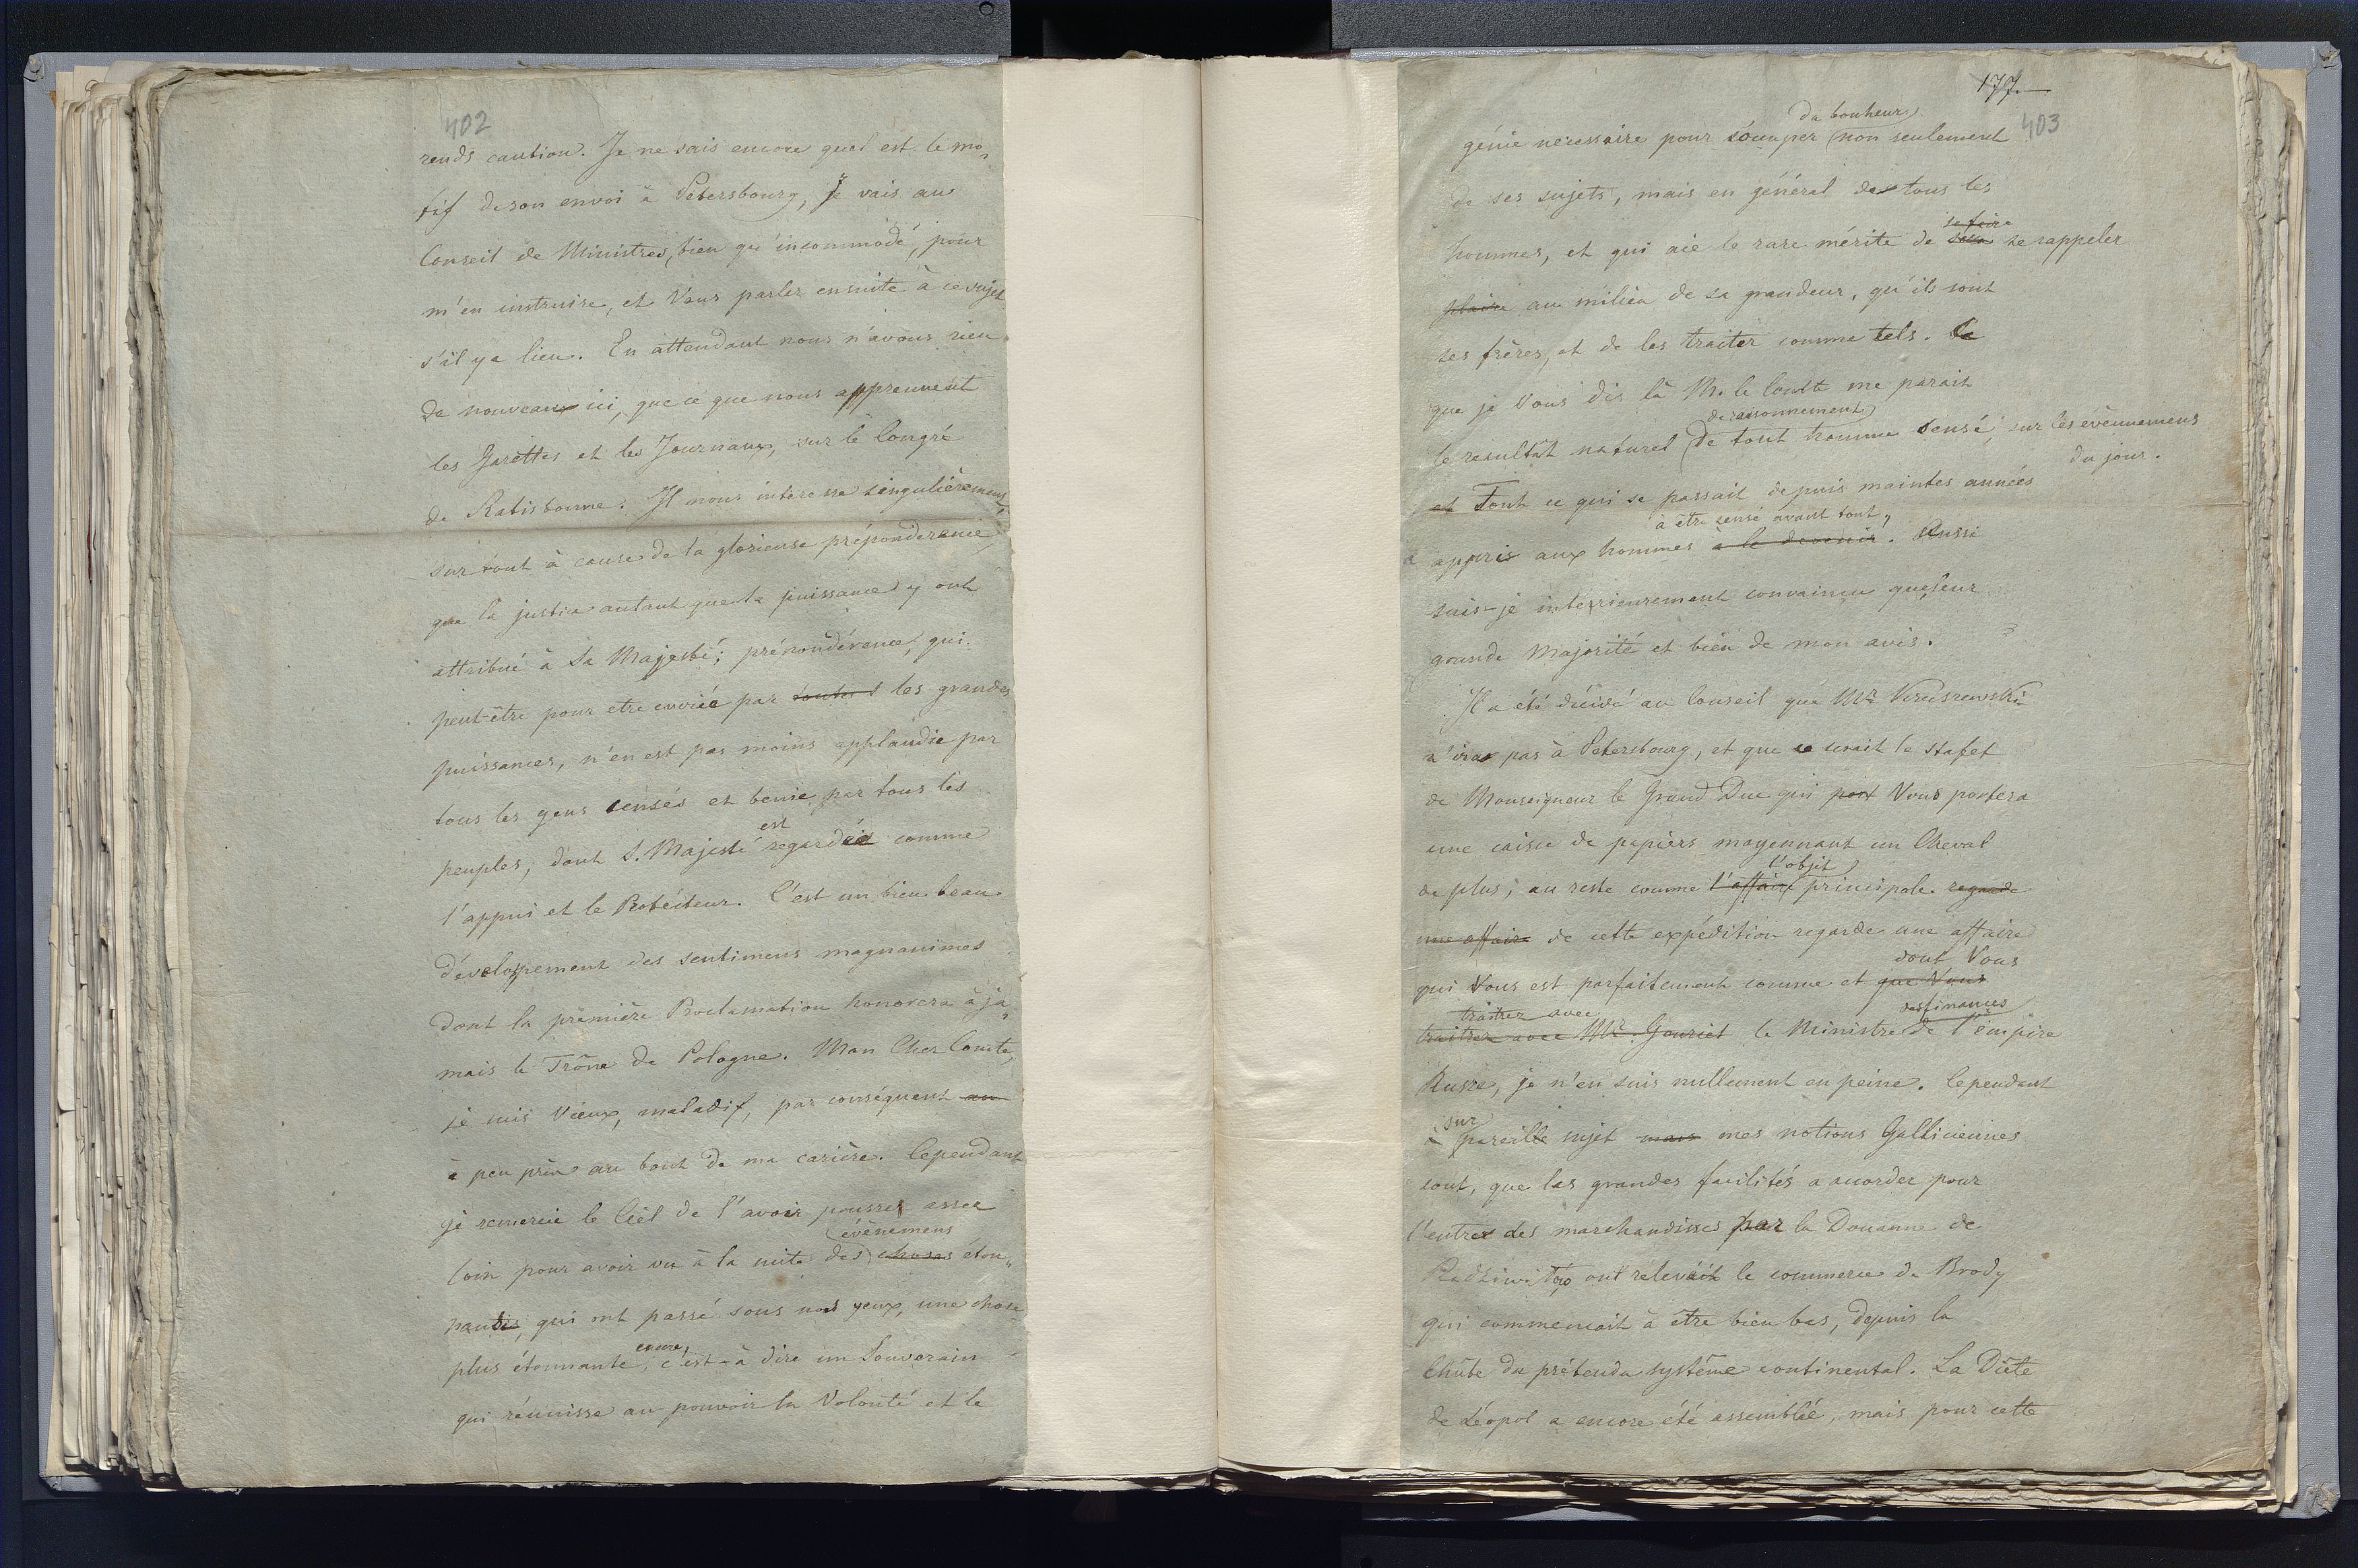 402
rends caution. Je ne sais encore quel est le mo„
tif de son envoi à Petersbourg, je vais au
Conseil de Ministres, bien qu'incommodé, pour
m'en instruire, et Vous parler ensuite à ce sujet
s'il y a lieu. En attendant nous n'avons rien
de nouveau ici, que ce que nous apprennent
les Gazettes et les Journaux, sur le Congré
de Ratisbonne. Il nous interesse singulièrement
sur tout à cause de la glorieuse prépondérance,
que la justice autant que la puissance y ont
attribué à Sa Majesté; prépondérance, qui
peut-être pour etre enviée par toutes les grandes
puissances, n'en est pas moins applaudie par
tous les gens sensés et benie par tous les
est
peuples, dont S. Majesté regardée comme
l'appui et le Protécteur. C'est un bien beau
dévelopement des sentimens magnanimes
dont la première Proclamation honorera à ja„
mais le Trône de Pologne. Mon Cher Comte,
je suis Vieux, maladif, par conséquent au
à peu près au bout de ma carière. Cependant
je remercie le Ciel de l'avoir pousser assez
événemens
loin pour avoir vu à la suite des choses éton„
nantes, qui ont passé sous nos yeux, une chose
encore,
plus étonnante, c'est-à dire un Souverain
qui réunisse au pouvoir la Volonté et le
177.
403
du bonheur
génie necessaire pour s'occuper non seulement
de ses sujets, mais en général de tous les
se faire
hommes, et qui aie le rare mérite de se rappeler
plaire au milieu de sa grandeur, qu'ils sont
ses frères, et de les traiter comme tels. Ce
que je Vous dis là M. le Comte me parait
de raisonnement
le resultât naturel de tout homme sensé, sur les évènnemens
du jour.
et Tout ce qui se passait depuis maintes années
à être sensé avant tout,
a appris aux hommes a le devenir. Aussi
suis-je interrieurement convaincu que leur
grande Majorité et bien de mon avis.
Il a été décidé au Conseil que Mr Kruszewski
n'irat pas à Petersbourg, et que ce serait le stafet
de Monseigneur le Grand Duc qui port Vous portera
une caisse de papiers moyennant un Cheval
l'objet
de plus; au reste comme l'affaire principale regarde
une affaire de cette expédition regarde une affaire
dont Vous
qui Vous est parfaitement connue et que Vous
traitrez avec
des finances
traitrez avec Mr. Gouriet le Ministre de l'émpire
Russe, je n'en suis nullement en peine. Cependant
sur
à pareille sujet mais mes notions Galliciennes
sont, que les grandes facilités a accorder pour
l'entrer des marchandises par la Douanne de
Radziwiłłow ont relevait le commerce de Brody
qui commencait à être bien bas, depuis la
Chûte du prétendu systême continental. La Diète
de Léopol a encore été assemblée, mais pour cette